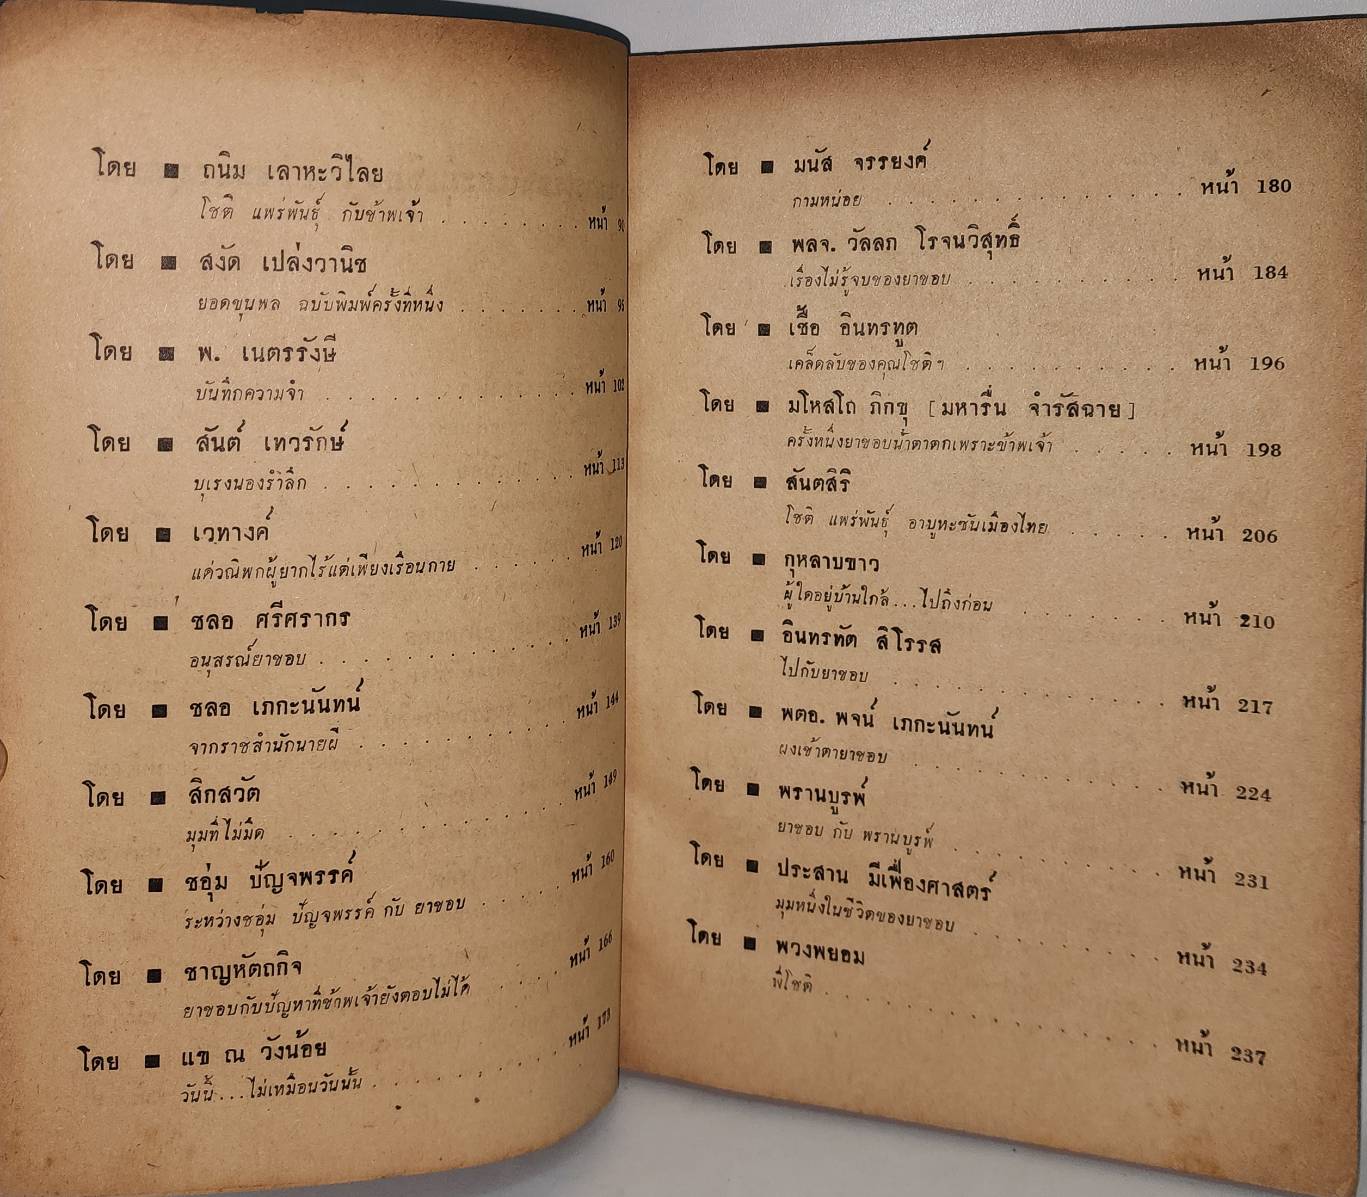 โดย ■ ถนิม เลาหะวิไลย
โชติ แพร่พันธุ์ กับข้าพเจ้า . . . . . . . . หน้า
โดย ■ สงัด เปล่งวานิช
ยอดขุนพล ฉบับพิมพ์ครั้งที่หนึ่ง . . . . . . . หน้า 95
โดย ■ พ. เนตรรังษี
บันทึกความจำ . . . . . . . . . . . . หน้า 102
โดย ■ สันต์ เทวรักษ์
บุเรงนองรำลึก . . . . . . . . . . . . หน้า 113
โดย ■ เวทางค์
แด่วณิพกผู้ยากไร้แต่เพียงเรือนกาย . . . . . . หน้า 120
โดย ■ ชลอ ศรีศรากร
อนุสรณ์ยาขอบ . . . . . . . . . . . . หน้า 139
โดย ■ ชลอ เภกะนันทน์
จากราชสำนักนายผี . . . . . . . . . . . หน้า 144
โดย ■ สิกสวัต
มุมที่ไม่มืด . . . . . . . . . . . . . หน้า 149
โดย ■ ชอุ่ม ปัญจพรรค์
ระหว่างชอุ่ม ปัญจพรรค์ กับ ยาขอบ . . . . . หน้า 160
โดย ■ ชาญหัตถกิจ
ยาขอบกับปัญหาที่ข้าพเจ้ายังตอบไม่ได้ . . . . . หน้า 166
โดย ■ แข ณ วังน้อย
วันนี้...ไม่เหมือนวันนั้น . . . . . . . . . . หน้า 173
โดย ■ มนัส จรรยงค์
กามหน่อย . . . . . . . . . . . . . . หน้า 180
โดย ■ พลจ. วัลลภ โรจนวิสุทธิ์
เรื่องไม่รู้จบของยาขอบ . . . . . . . . . . หน้า 184
โดย ■ เชื้อ อินทรทูต
เคล็ดลับของคุณโชติฯ . . . . . . . . . . หน้า 196
โดย ■ มโหสโถ ภิกขุ [มหารื่น จำรัสฉาย]
ครั้งหนึ่งยาขอบน้ำตาตกเพราะข้าพเจ้า . . . . . . หน้า 198
โดย ■ สันตสิริ
โชติ แพร่พันธุ์ อาบูหะซันเมืองไทย . . . . . . หน้า 206
โดย ■ กุหลาบขาว
ผู้ใดอยู่บ้านใกล้...ไปถึงก่อน . . . . . . . . หน้า 210
โดย ■ อินทรทัต สิโรรส
ไปกับยาขอบ . . . . . . . . . . . . . หน้า 217
โดย ■ พตอ. พจน์ เภกะนันทน์
ผงเข้าตายาขอบ . . . . . . . . . . . . หน้า 224
โดย ■ พรานบูรพ์
ยาขอบ กับ พรานบูรพ์ . . . . . . . . . . หน้า 231
โดย ■ ประสาน มีเฟื่องศาสตร์
มุมหนึ่งในชีวิตของยาขอบ . . . . . . . . . หน้า 234
โดย ■ พวงพยอม
พี่โชติ . . . . . . . . . . . . . . . หน้า 237